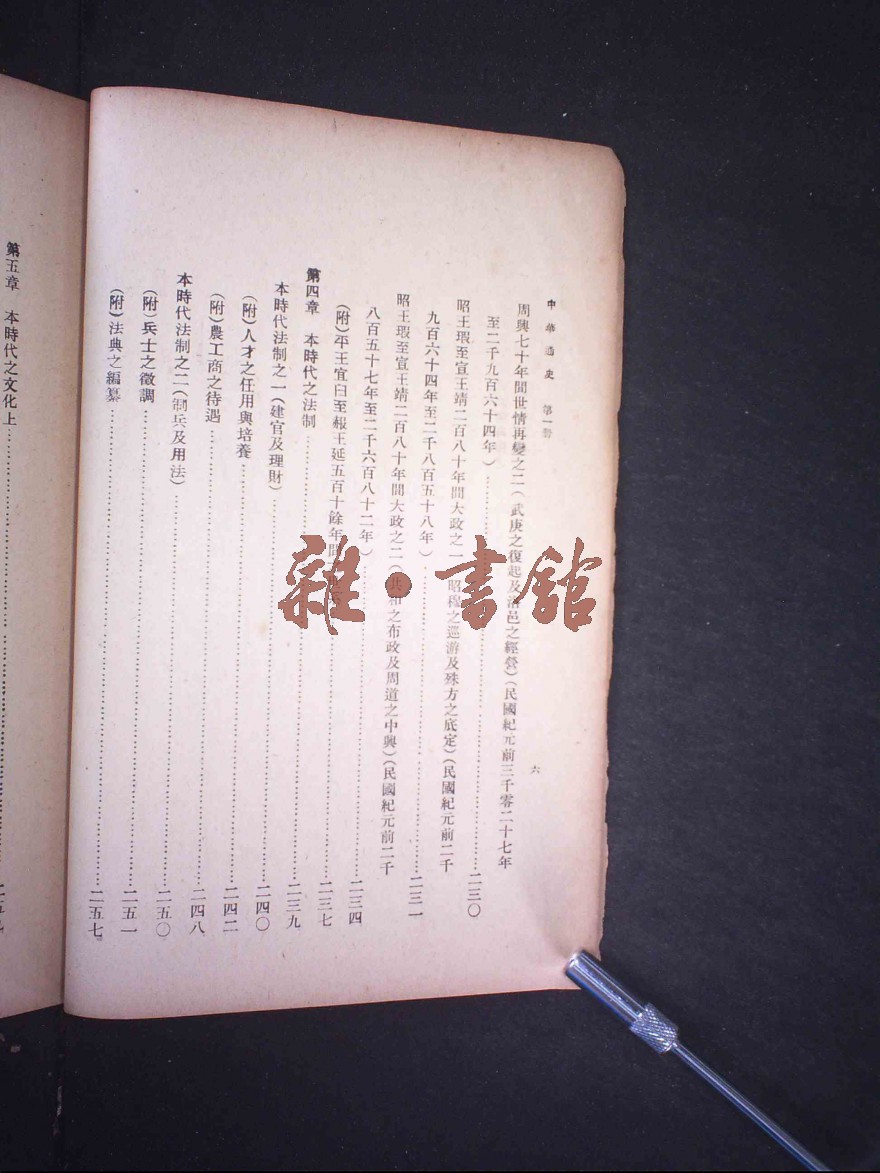 中華通史 第一冊
六
周興七十年間世情再變之二(武庚之復起及洛邑之經營)(民國紀元前三千零二十七年
至二千九百六十四年)……二三〇
昭王瑕至宣王靖二百八十年間大政之一(昭穆之巡游及殊方之底定)(民國紀元前二千
九百六十四年至二千八百五十八年)……二三一
昭王瑕至宣王靖二百八十年間大政之二(共和之布政及周道之中興)(民國紀元前二千
八百五十七年至二千六百八十二年)……二三四
(附)平王宜臼至赧王延五百十餘年間……二三七
第四章 本時代之法制……二三九
本時代法制之一(建官及理財)……二四〇
(附)人才之任用與培養……二四二
(附)農工商之待遇……二四八
本時代法制之二(制兵及用法)……二五〇
(附)兵士之徵調……二五一
(附)法典之編纂……二五七
第五章 本時代之文化上……二五九
雜·書館